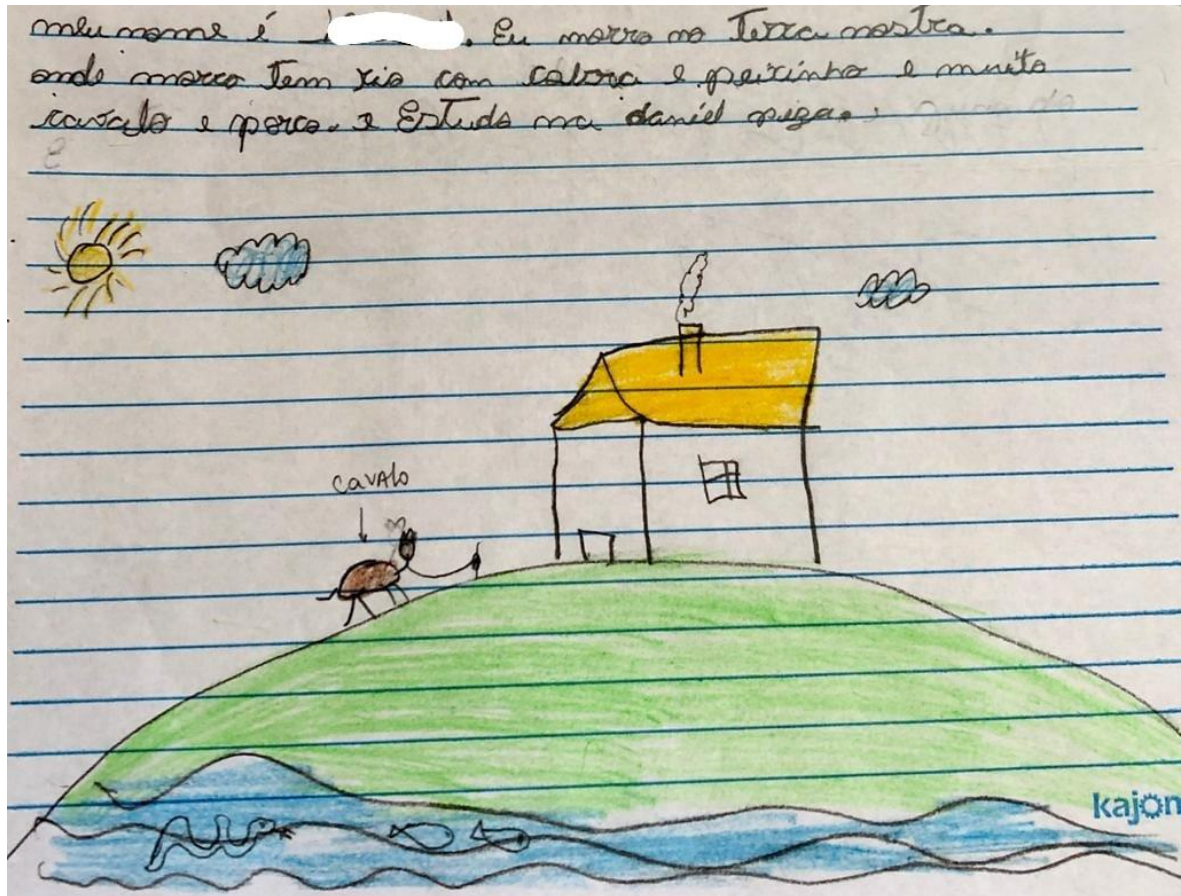 meu nome é . Eu morro no Terra nostra.
onde morro Tem rio com cobra e peixinho e muito
cavalo e porco. e Estudo na daniel piza.
CAVALO
kajon